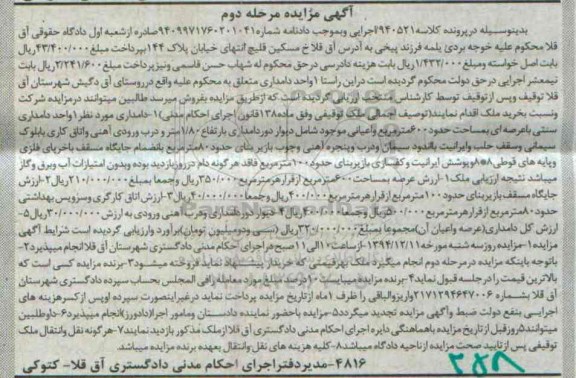 آگهی مزایده مرحله دوم
بدینوسیله در پرونده کلاسه ۹۴۰۵۲۱ اجرایی وبموجب دادنامه شماره ۹۴۰۹۹۷۱۷۶۰۲۰۱۰۴۱ صادره از شعبه اول دادگاه حقوقی آق
قلا محکوم علیه خوجه بردی یلمه فرزند پیخی به آدرس آق قلاخ مسکن قلیچ انتهای خیابان پلاک ۱۴۴ پرداخت مبلغ ۴۳/۴۰۰/۰۰۰ ریال
بابت اصل خواسته ومبلغ ۱/۴۳۲/۰۰۰ ریال بابت هزینه دادرسی در حق محکوم له شهاب حسن قاسمی ونیز پرداخت مبلغ ۲/۲۴۱/۶۰۰ ریال بابت
نیمعشر اجرایی در حق دولت محکوم گردیده است در این راستا ۱ واحد دامداری متعلق به محکوم علیه واقع در روستای آق دگیش شهرستان آق
قلا توقیف وپس از توقیف توسط کارشناس منتخب ارزیابی گردیده است که از طریق مزایده بفروش میرسد طالبین میتوانند در مزایده شرکت
ونسبت بخرید ملک اقدام نمایند(توصیف اجمالی ملک توقیفی وفق ماده ۱۳۸ قانون اجرای احکام مدنی) ۱-دامداری مورد نظر ۱ واحد دامداری
سنتی باعرصه ای بمساحت حدود ۶۰۰ مترمربع واعیانی موجود شامل دیوار دور دامداری بارتفاع ۱/۸۰ متر و درب ورودی آهنی واتاق کاری بابلوک
سیمانی وسقف حلب وایرانیت بااندود سیمان ودرب وپنجره آهنی وچوب بازیر بنای حدود ۸۰ مترمربع بانضمام جایگاه مسقف باخرپای فلزی
وپایه های قوطی ۸*۸ وپوشش ایرانیت و کفسازی بازیربنای حدود ۱۰۰ مترمربع فاقد هرگونه دام درروز بازدید بوده وبدون امتیازات آب وبرق وگاز
میباشد نتیجه ارزیابی ملک ۱-ارزش عرصه بمساحت ۶۰۰ مترمربع از قرار هر مترمربع ۳۵۰/۰۰۰ ریال وجمعا بمبلغ ۲۱۰/۰۰۰/۰۰۰ ریال ۲-ارزش
جایگاه مسقف بازیربنای حدود ۱۰۰ مترمربع از قرار هر مترمربع ۴۰۰/۰۰۰ ریال وجمعا ۴۰/۰۰۰/۰۰۰ ریال ۳-ارزش اتاق کارگری وسرویس بهداشتی
حدود ۸۰ مترمربع از قرار هر مترمربع ۵۰۰/۰۰۰ ریال وجمعا ۴۰/۰۰۰/۰۰۰ ریال ۴-دیوار دور دامداری ودرب آهنی ورودی به ارزش ۳۰/۰۰۰/۰۰۰ ریال ۵-
ارزش کل دامداری(عرصه واعیان آن)مجموعا بمبلغ ۳۲۰/۰۰۰/۰۰۰ ریال (سی ودومیلیون تومان)برآورد وارزیابی گردیده است شرایط آگهی
مزایده ۱-مزایده روز سه شنبه مورخه ۱۳۹۴/۱۲/۱۱ ازساعت ۱۰ الی ۱۱ صبح در اجرای احکام مدنی دادگستری شهرستان آق قلا انجام میپذیرد ۲-
باتوجه باینکه مزایده در مرحله دوم انجام میگیرد ملک بهر قیمتی که خریدار پیشنهاد نماید فروخته میشود ۳-برنده مزایده کسی است که
بالاترین قیمت را در جلسه قبول نماید ۴-برنده مزایده میبایست ۱۰ درصد مبلغ مورد معامله رافی المجلس بحساب سپرده دادگستری شهرستان
آق قلا بشماره ۲۱۷۱۲۹۴۶۴۷۰۰۶ واریز والباقی را ظرف ۱ ماه از تاریخ مزایده پرداخت نماید در غیر اینصورت سپرده اوپس از کسر هزینه های
اجرایی بنفع دولت ضبط وآگهی مزایده تجدید میگردد ۵-مزایده باحضور نماینده دادستان ومامور اجرا(دادورز)انجام میپذیرد ۶-داوطلبین
میتوانند ۵ روز قبل از تاریخ مزایده باهماهنگی دایره اجرای احکام مدنی دادگستری آق قلا از ملک مذکور بازدید نمایند ۷-هرگونه نقل وانتقال ملک
توقیفی پس از تایید صحت مزایده از ناحیه دادگاه میباشد ۸-کلیه هزینه های نقل وانتقال بعهده برنده مزایده میباشد
۴۸۱۶-مدیر دفتر اجرای احکام مدنی دادگستری آق قلا- کتوکی